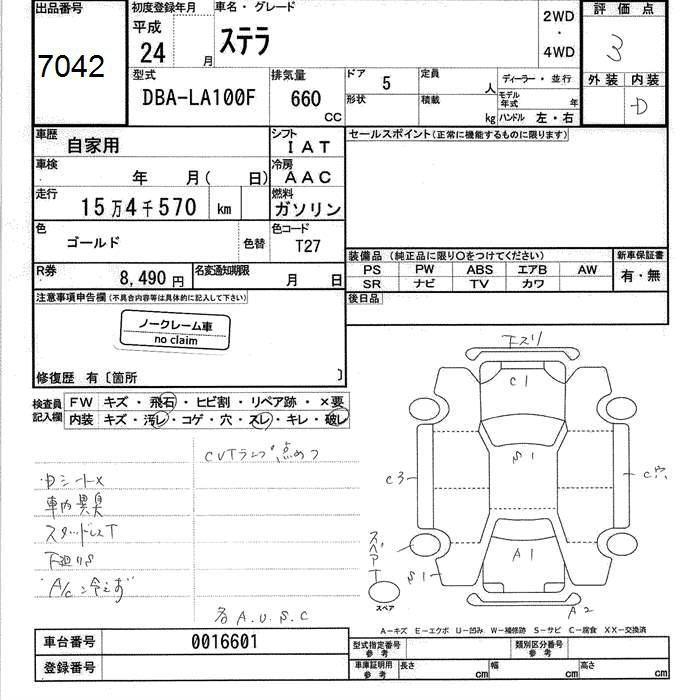 出品番号 初度登録年月 車名・グレード 2WD・4WD 評価点
7042 平成 24 月 ステラ 3
外装 内装
D
型式 排気量 ドア 5 定員 人 ディーラー・並行
DBA-LA100F 660 CC 形状 積載 kg モデル年式 年
ハンドル 左・右
車歴 自家用 シフト IAT セールスポイント(正常に機能するものに限ります)
車検 年 月( 日) 冷房 AAC
走行 15万4千570 km 燃料 ガソリン
色 ゴールド 色替 色コード T27
装備品 (純正品に限り〇をつけてください) 新車保証書
PS PW ABS エアB AW 有・無
SR ナビ TV カワ
R券 8,490円 名変通知期限 月 日
後日品
注意事項申告欄(不具合内容等は具体的に記入して下さい)
ノークレーム車
no claim
修復歴 有〔箇所 〕
検査員記入欄 FW キズ・飛石・ヒビ割・リペア跡・×要
内装 キズ・汚レ・コゲ・穴・スレ・キレ・破レ
CVTランプ点めつ
シートX
車内異臭
スタッドレスT
下廻りS
A/C冷えず
各A.U.S.C
下スリ
C1
S1
C3
C穴
A1
スペアT
S1
スペア
A2
A―キズ E―エクボ U―凹み W―補修跡 S―サビ C―腐食 XX―交換済
車台番号 0016601
登録番号
型式指定番号 参考 類別区分番号 参考
車庫証明用 参考 長さ cm 幅 cm 高さ cm